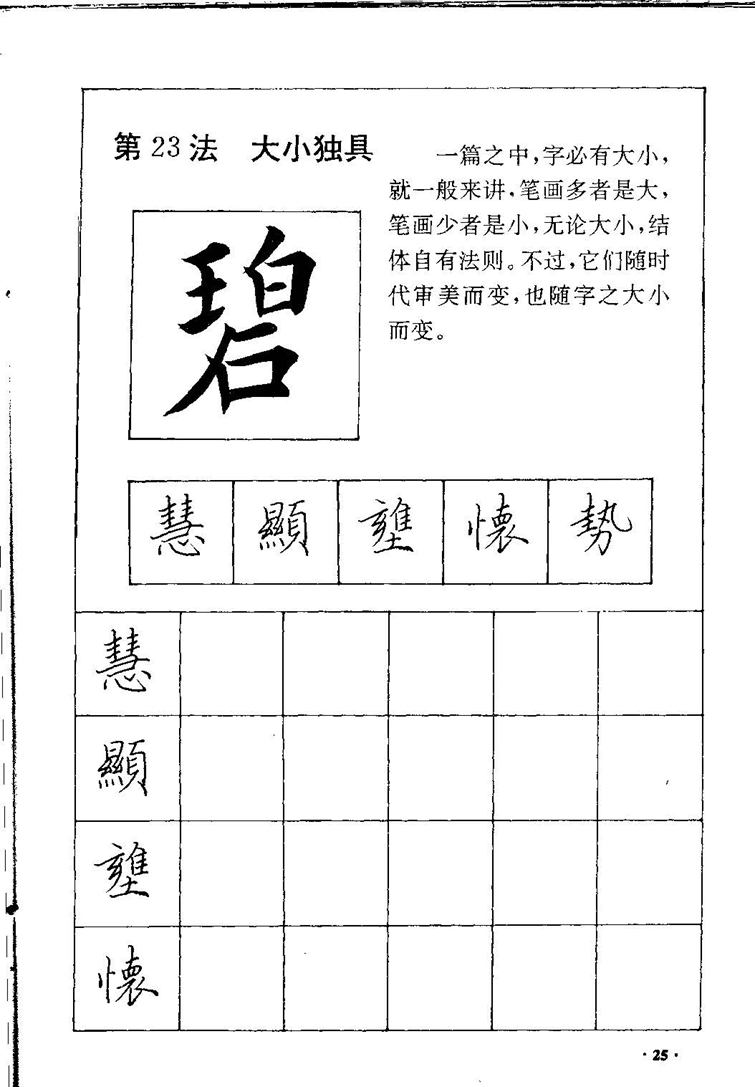 第23法 大小独具
一篇之中,字必有大小,
就一般来讲,笔画多者是大,
笔画少者是小,无论大小,结
体自有法则。不过,它们随时
代审美而变,也随字之大小
而变。
碧
慧 顯 壅 懷 勢
慧
顯
壅
懷
·25·